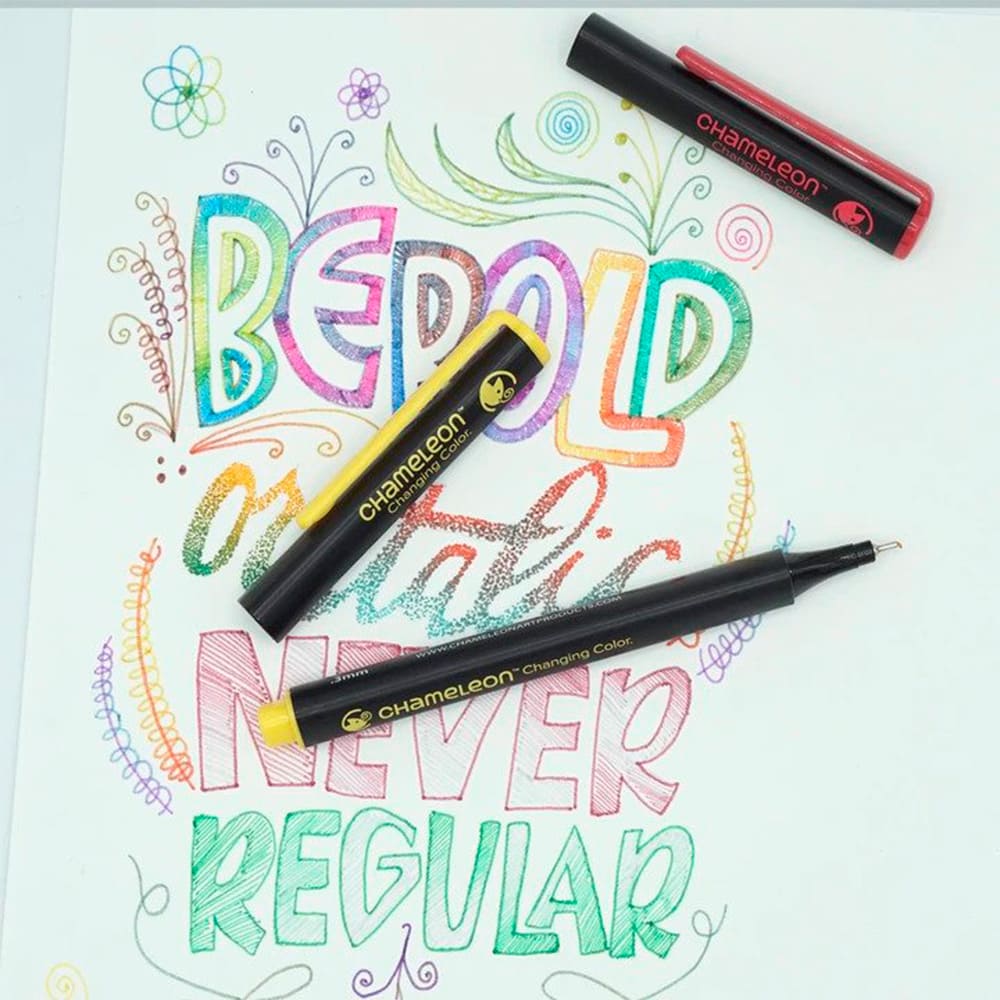 CHameLeon™
Changing Color.
BE BOLD
CHameLeon™
Changing Color.
or italic
.3mm WWW.CHAMELEONARTPRODUCTS.COM
CHameLeon™ Changing Color.
NEVER
REGULAR